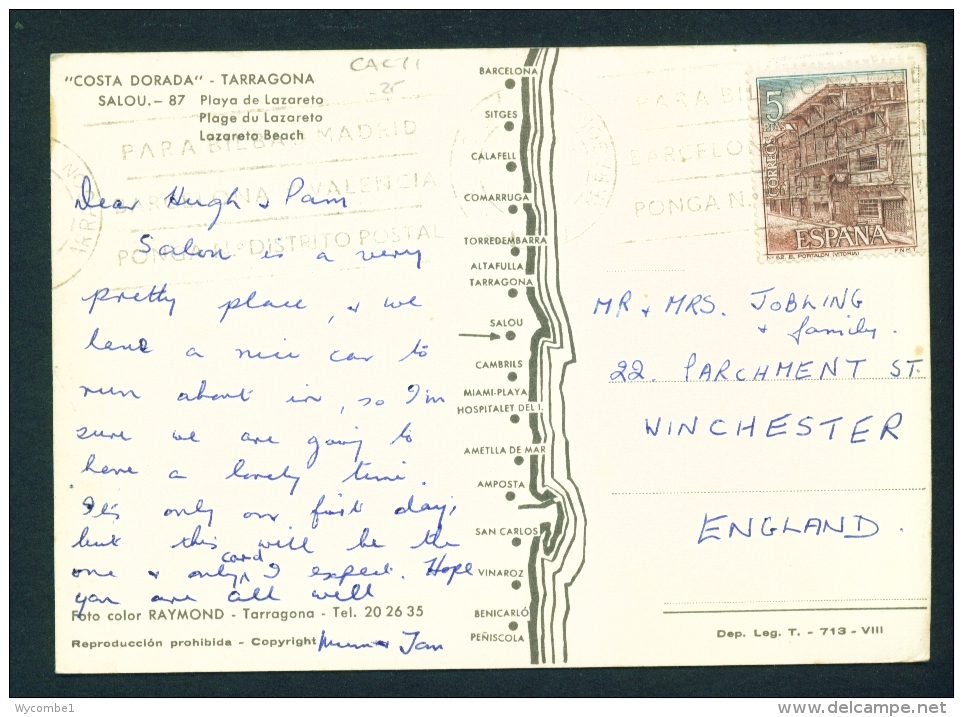 "COSTA DORADA" - TARRAGONA
SALOU. - 87 Playa de Lazareto
Plage du Lazareto
Lazareto Beach
CAC 71
25
PARA BILBAO MADRID
BARCELONA VALENCIA
PONGA N.º DISTRITO POSTAL
Dear Hugh & Pam
Salou is a very
pretty place, & we
have a nice car to
run about in, so I'm
sure we are going to
have a lovely time.
It's only our first day,
but this will be the
one & only card I expect. Hope
you are all well
Mum & Ian
Foto color RAYMOND - Tarragona - Tel. 20 26 35
Reproducción prohibida - Copyright
BARCELONA
SITGES
CALAFELL
COMARRUGA
TORREDEMBARRA
ALTAFULLA
TARRAGONA
SALOU
CAMBRILS
MIAMI-PLAYA
HOSPITALET DEL I.
AMETLLA DE MAR
AMPOSTA
SAN CARLOS
VINAROZ
BENICARLÓ
PEÑISCOLA
PARA BILBAO
BARCELON
PONGA N.
5
PTAS
CORREOS
ESPAÑA
Nº 52. EL PORTALON (VITORIA) F.N.M.T.
MR & MRS. JOBLING
& family.
22. PARCHMENT ST.
WINCHESTER
ENGLAND.
Dep. Leg. T. - 713 - VIII
Wycombe1
www.delcampe.net